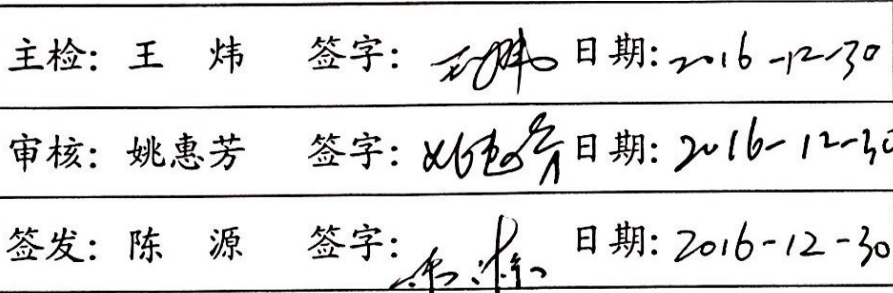 主检: 王 炜 签字: 王炜 日期: 2016-12-30
审核: 姚惠芳 签字: 姚惠芳 日期: 2016-12-30
签发: 陈 源 签字: 日期: 2016-12-30